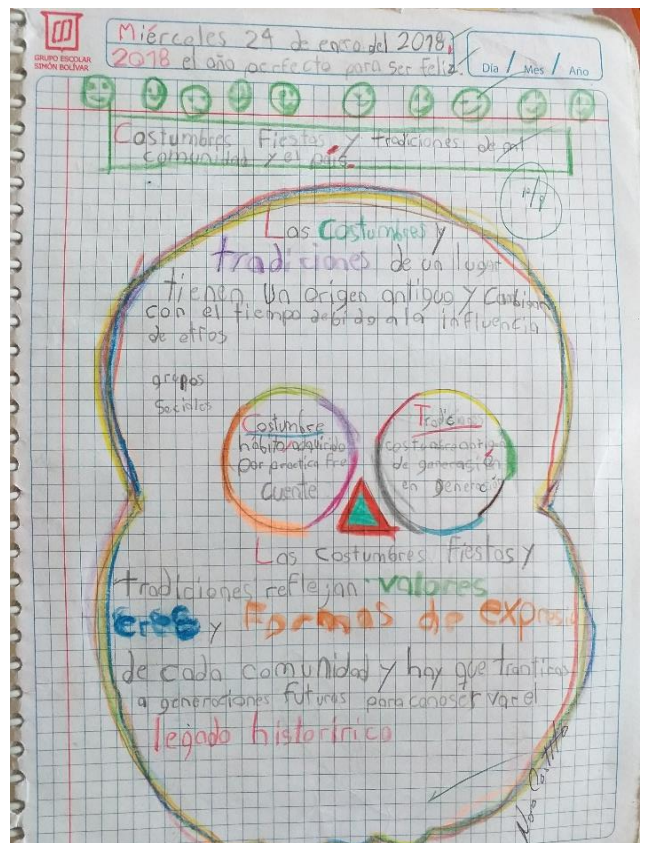 GRUPO ESCOLAR
SIMÓN BOLÍVAR
Miércoles 24 de enero del 2018.
2018 el año perfecto para ser feliz.
Día / Mes / Año
Costumbres Fiestas y tradiciones de
comunidad y el país.
Las Costumbres y
tradiciones de un lugar
tienen un origen antiguo y Cambian
con el tiempo debido a la influencia
de otros
grupos
Sociales
Costumbre
hábito adquirido
por practica fre
cuente
Tradición
costumbre
de generasión
en generación
Las costumbres fiestas y
tradiciones reflejan valores
y Formas de expresió
de cada comunidad y hay que
a generaciones futuras para conoser var el
legado historírico